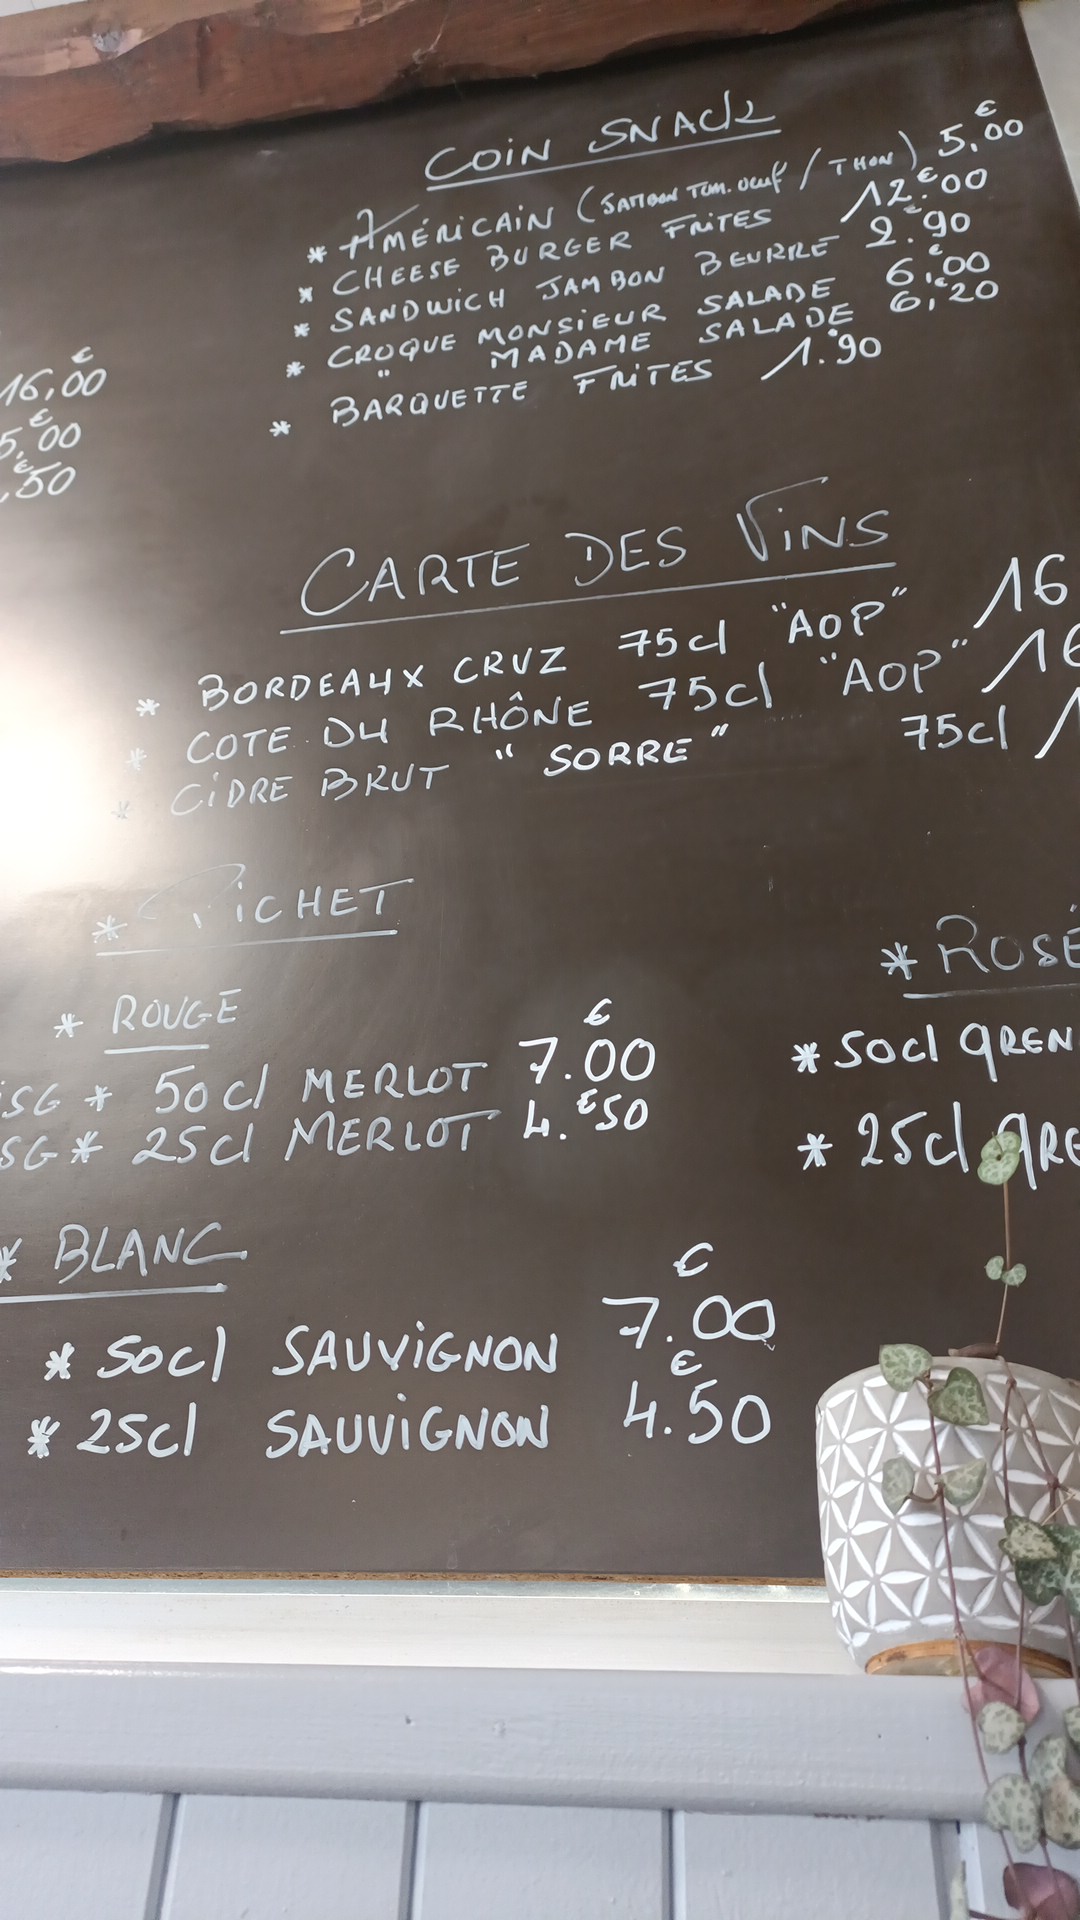 COIN SNACK
* AMÉRICAIN (JAMBON TOM. OEUF / THON) 5,00 €
* CHEESE BURGER FRITES 12.00 €
* SANDWICH JAMBON BEURRE 2.90 €
* CROQUE MONSIEUR SALADE 6,00 €
" MADAME SALADE 6,20 €
* BARQUETTE FRITES 1.90 €
16,00 €
5,00 €
,50 €
CARTE DES VINS
* BORDEAUX CRUZ 75cl "AOP" 16
* COTE DU RHÔNE 75cl "AOP" 16
* CIDRE BRUT "SORRE" 75cl 1
* PICHET
* ROUGE
* 50cl MERLOT 7.00 €
SG * 25cl MERLOT 4.50 €
* ROSÉ
* 50cl GREN
* 25cl GRE
* BLANC
* 50cl SAUVIGNON 7.00 €
* 25cl SAUVIGNON 4.50 €